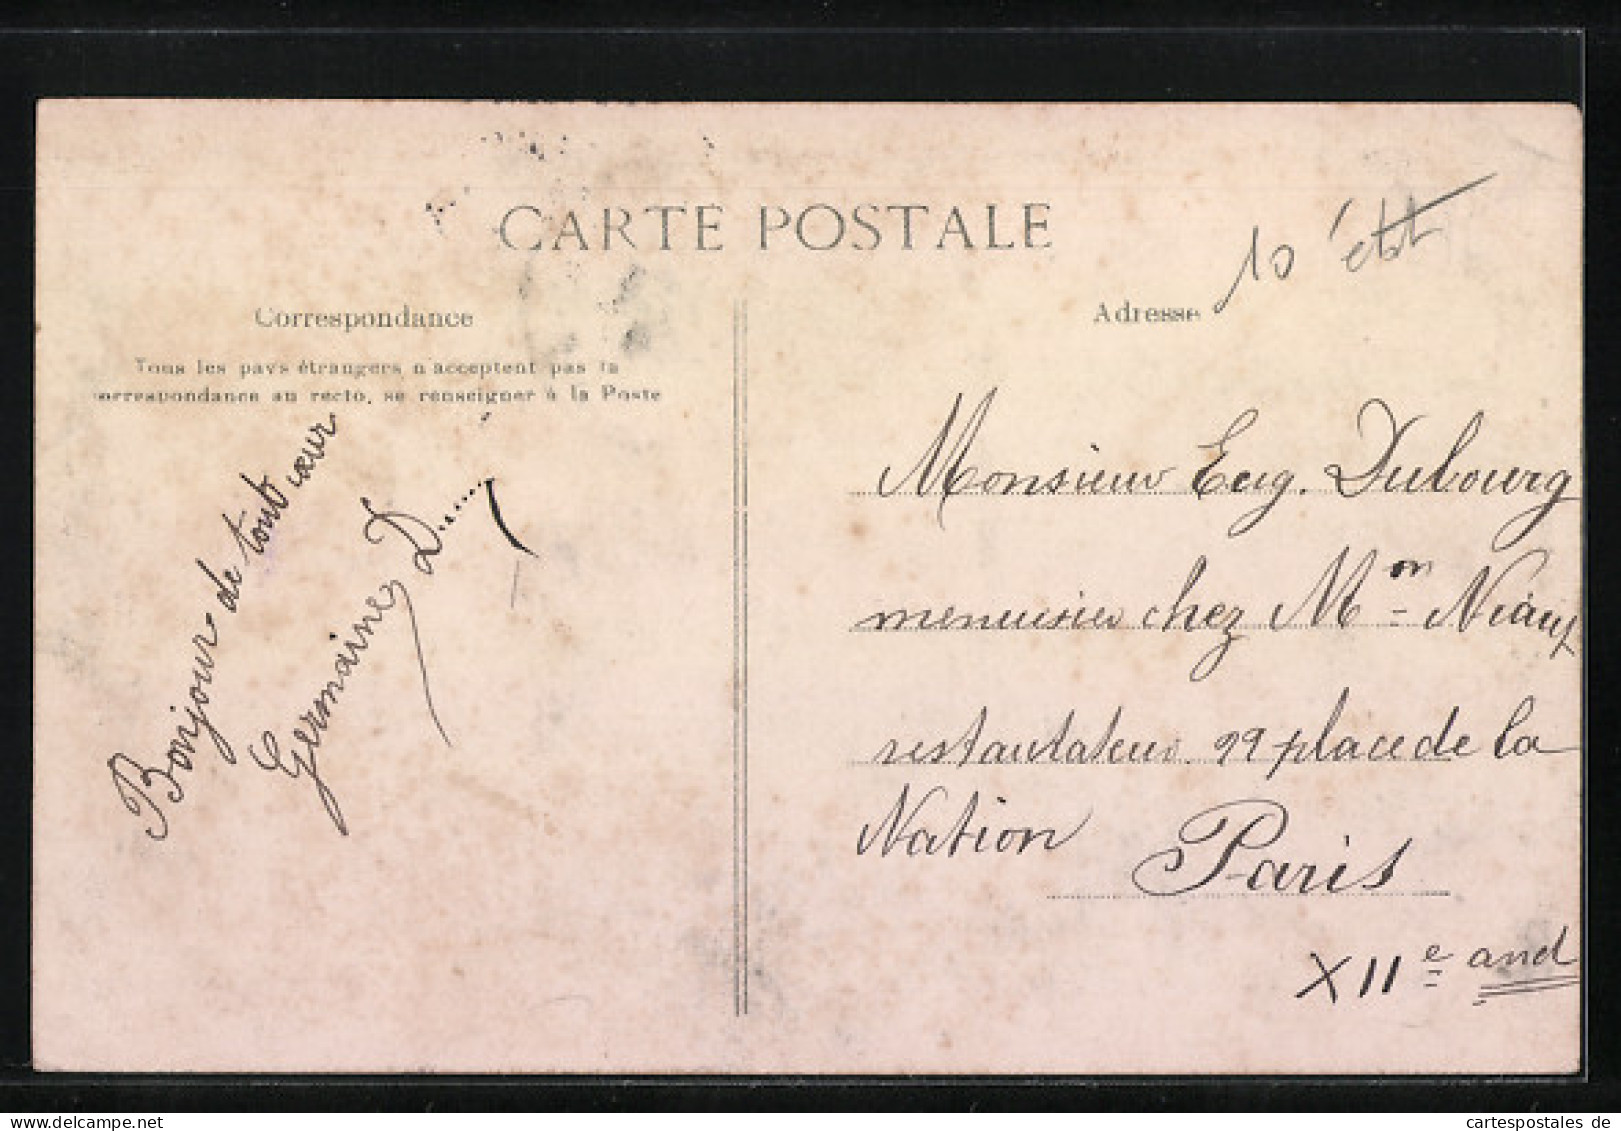 CARTE POSTALE
10
Correspondance
Adresse
Tous les pays étrangers n'acceptent pas la
correspondance au recto, se renseigner à la Poste
Bonjour de tout cœur
Germaine D......
Monsieur Eug. Dubourg
menuisier chez M.on Niaux
restautateur. 99 place de la
Nation
Paris
XIIe and
cartespostales de